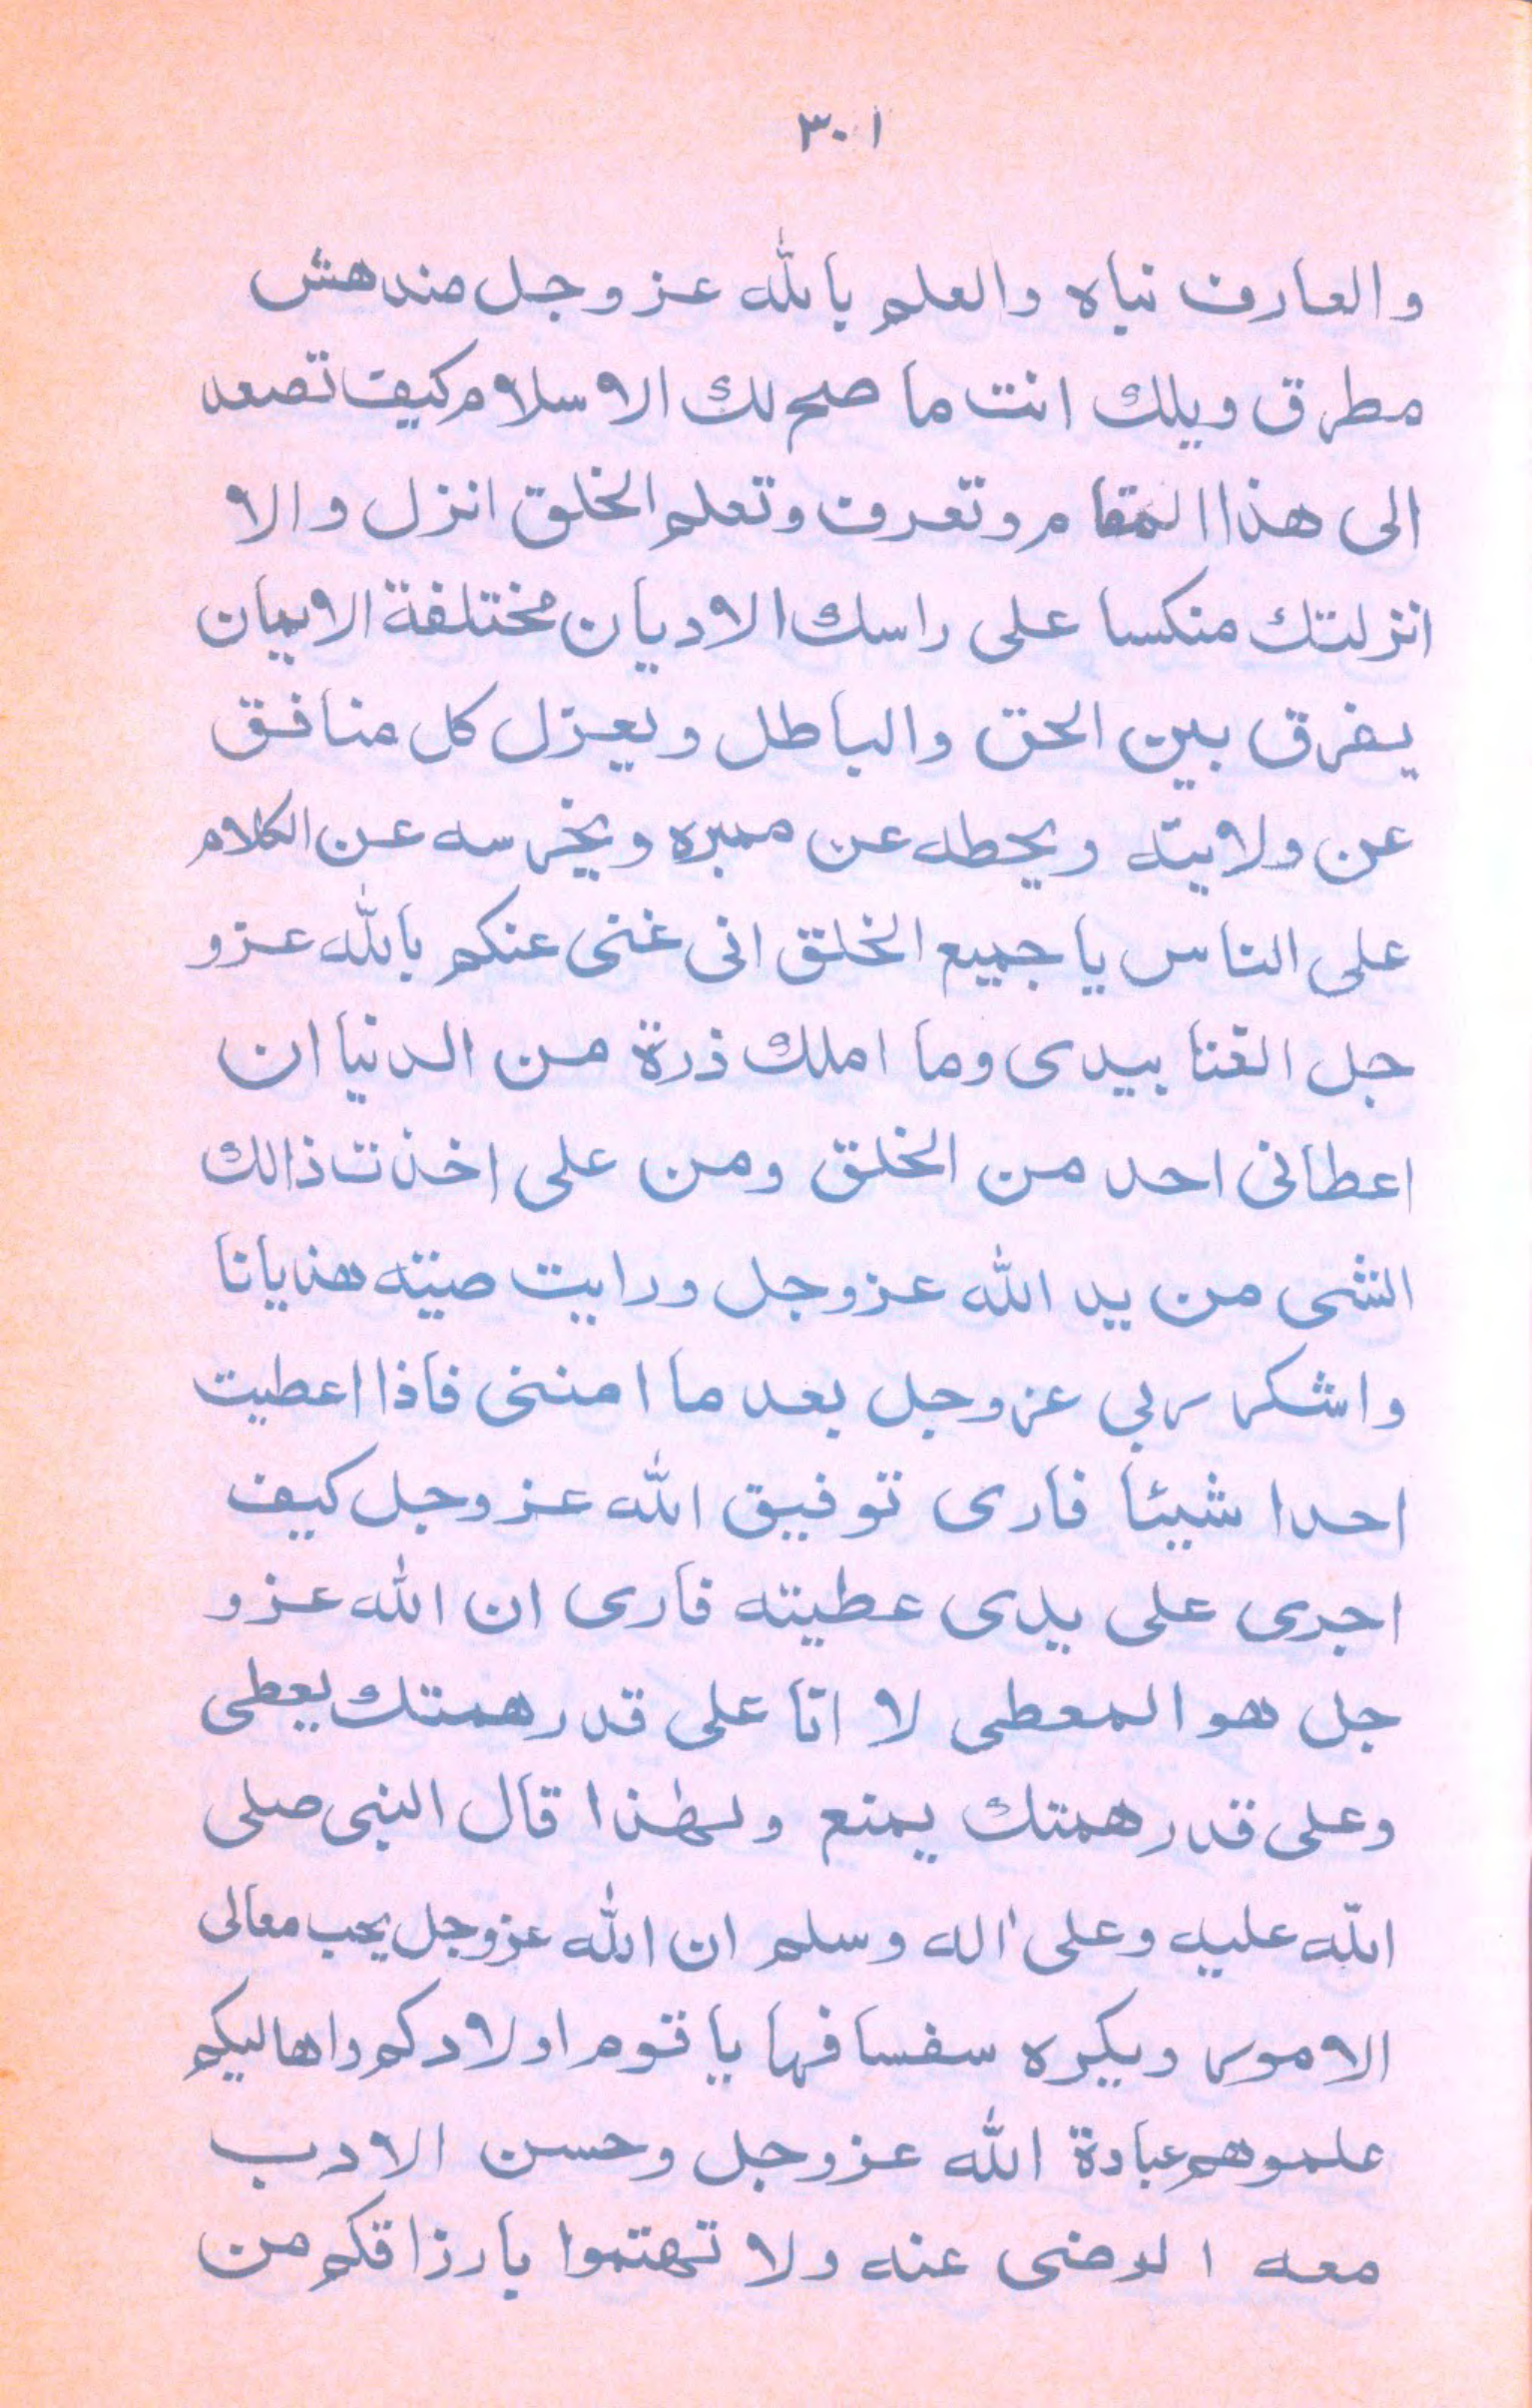 ٣٠١
والعارف نباه والعلم بالله عز وجل مندهش
مطرق ويلك انت ما صح لك الاسلام كيف تصعد
الى هذا المقام وتعرف وتعلم الخلق انزل والا
انزلتك منكسا على راسك الاديان مختلفة الايمان
يفرق بين الحق والباطل ويعزل كل منافق
عن ولايته ويحطه عن ممبره ويخرسه عن الكلام
على الناس يا جميع الخلق انى غنى عنكم بالله عز و
جل الغنا بيدى وما املك ذرة من الدنيا ان
اعطانى احد من الخلق ومن على اخذت ذالك
الشى من يد الله عز وجل ورايت صيته هذيانا
واشكر ربي عز وجل بعد ما امننى فاذا اعطيت
احدا شيئا فارى توفيق الله عز وجل كيف
اجرى على يدى عطيته فارى ان الله عز و
جل هو المعطى لا انا على قدر همتك يعطى
وعلى قدر همتك يمنع ولهٰذا قال النبى صلى
الله عليه وعلى اٰله وسلم ان الله عز وجل يحب معالى
الامور ويكره سفسافها يا قوم اولادكم واهاليكم
علموهم عبادة الله عز وجل وحسن الادب
معه الرضى عنه ولا تهتموا بارزاقكم من